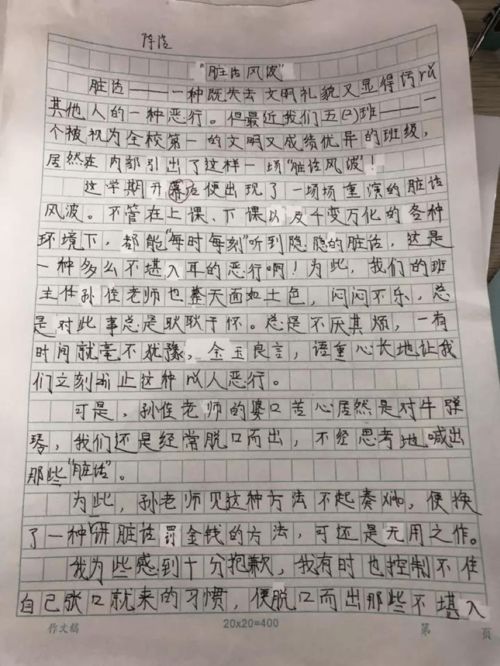 陈洁
“脏话风波”
脏话——一种既失去文明礼貌又显得污
其他人的一种恶行。但最近我们五(2)班——一
个被视为全校第一的文明又成绩优异的班级，
居然在内部引出了这样一场“脏话风波！
这学期开幕后便出现了一场场重演的脏话
风波。不管在上课、下课以及千变万化的各种
环境下，都能“每时每刻”听到隐隐的脏话，这是
一种多么不堪入耳的恶行啊！为此，我们的班
主任孙佳老师也整天面如土色，闷闷不乐，总
是对此事总是耿耿于怀。总是不厌其烦，一有
时间就毫不犹豫，金玉良言，语重心长地让我
们立刻停止这种恶行。
可是，孙佳老师的婆口苦心居然是对牛弹
琴，我们还是经常脱口而出，不经思考地喊出
那些“脏话”。
为此，孙老师见这种方法不起奏效，便换
了一种讲脏话罚金钱的方法，可还是无用之作。
我为些感到十分抱歉，我有时也控制不住
自己张口就来的习惯，便脱口而出那些不堪入
作文稿 20×20=400 第 页